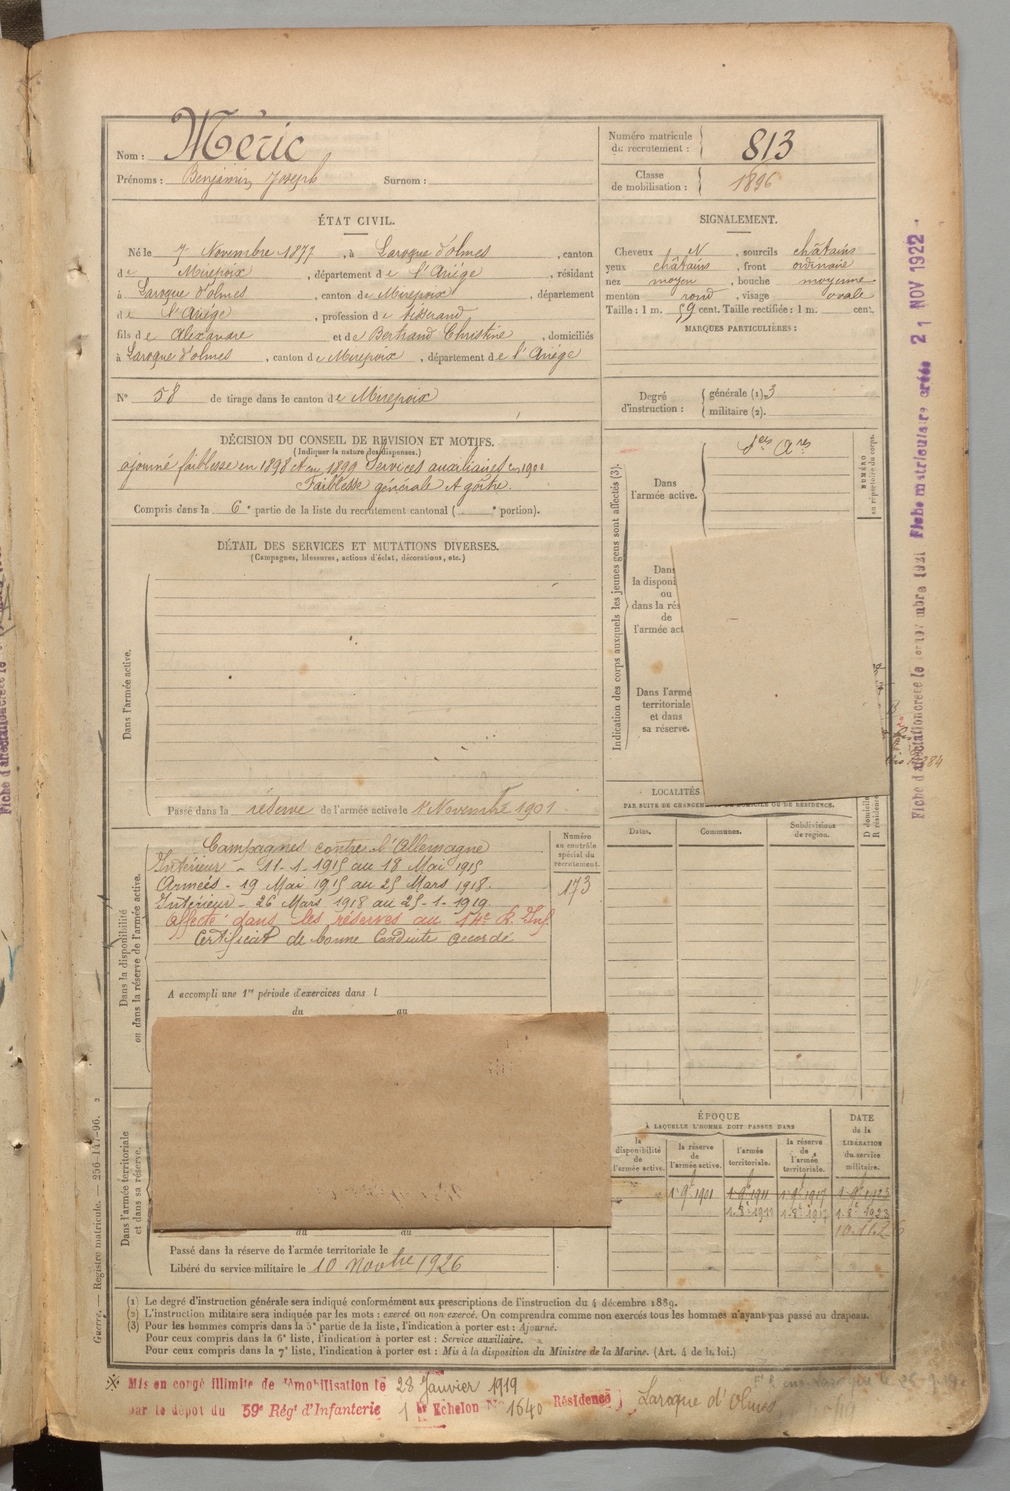 Nom : Méric
Prénoms : Benjamin Joseph Surnom :
Numéro matricule du recrutement : 813
Classe de mobilisation : 1896
ÉTAT CIVIL.
Né le 7 Novembre 1877, à Laroque d'olmes, canton
de Mirepoix, département de l'Ariége, résidant
à Laroque d'olmes, canton de Mirepoix, département
de l'Ariége, profession de tisserand
fils de Alexandre et de Bertrand Christine, domiciliés
à Laroque d'olmes, canton de Mirepoix, département de l'Ariége
SIGNALEMENT.
Cheveux N, sourcils châtains
yeux châtains, front ordinaire
nez moyen, bouche moyenne
menton rond, visage ovale
Taille : 1 m. 59 cent. Taille rectifiée : 1 m. cent.
MARQUES PARTICULIÈRES :
N° 58 de tirage dans le canton de Mirepoix
Degré d'instruction : générale (1). 3
militaire (2).
DÉCISION DU CONSEIL DE RÉVISION ET MOTIFS.
(Indiquer la nature des dispenses.)
ajourné faiblesse en 1898 et en 1899 Services auxiliaires en 1900
Faiblesse générale et goitre.
Compris dans la 6e partie de la liste du recrutement cantonal ( e portion).
DÉTAIL DES SERVICES ET MUTATIONS DIVERSES.
(Campagnes, blessures, actions d'éclat, décorations, etc.)
Dans l'armée active.
Passé dans la réserve de l'armée active le 1er Novembre 1901
Indication des corps auxquels les jeunes gens sont affectés (3).
Dans l'armée active.
NUMÉRO au répertoire du corps.
Dans
la disponi
ou
dans la rés
de
l'armée act
Dans l'armé
territoriale
et dans
sa réserve.
LOCALITÉS
PAR SUITE DE CHANGEM DE DOMICILE OU DE RÉSIDENCE.
Dates. Communes. Subdivisions de region. D domicile R résidence
Dans la disponibilité
ou dans la réserve de l'armée active.
Campagnes contre l'Allemagne
Intérieur - 11-1-1915 au 18 Mai 1915
Armées - 19 Mai 1915 au 25 Mars 1918.
Intérieur - 26 Mars 1918 au 25-1-1919
Affecté dans les réserves au R. Inf.
Certificat de bonne Conduite accordé
Numéro au contrôle spécial du recrutement.
173
A accompli une 1re période d'exercices dans l
du au
Dans l'armée territoriale
et dans sa réserve.
du au
Passé dans la réserve de l'armée territoriale le
Libéré du service militaire le 10 Novbre 1926
ÉPOQUE
À LAQUELLE L'HOMME DOIT PASSER DANS
la disponibilité de l'armée active. la réserve de l'armée active. l'armée territoriale. la réserve de l'armée territoriale.
DATE de la LIBÉRATION du service militaire.
1 9bre 1901 1 9bre 1911 1 9bre 1917
(1) Le degré d'instruction générale sera indiqué conformément aux prescriptions de l'instruction du 4 décembre 1889.
(2) L'instruction militaire sera indiquée par les mots : exercé ou non exercé. On comprendra comme non exercés tous les hommes n'ayant pas passé au drapeau.
(3) Pour les hommes compris dans la 5e partie de la liste, l'indication à porter est : Ajourné.
Pour ceux compris dans la 6e liste, l'indication à porter est : Service auxiliaire.
Pour ceux compris dans la 7e liste, l'indication à porter est : Mis à la disposition du Ministre de la Marine. (Art. 4 de la loi.)
Mis en congé illimité de démobilisation le 28 Janvier 1919
par le dépôt du 59e Régt d'Infanterie 1er Echelon N° 1540 Résidence Laroque d'Olmes
Guerre. — Registre matricule. — 256-147-96.
Fiche matriculaire créée 21 NOV 1922